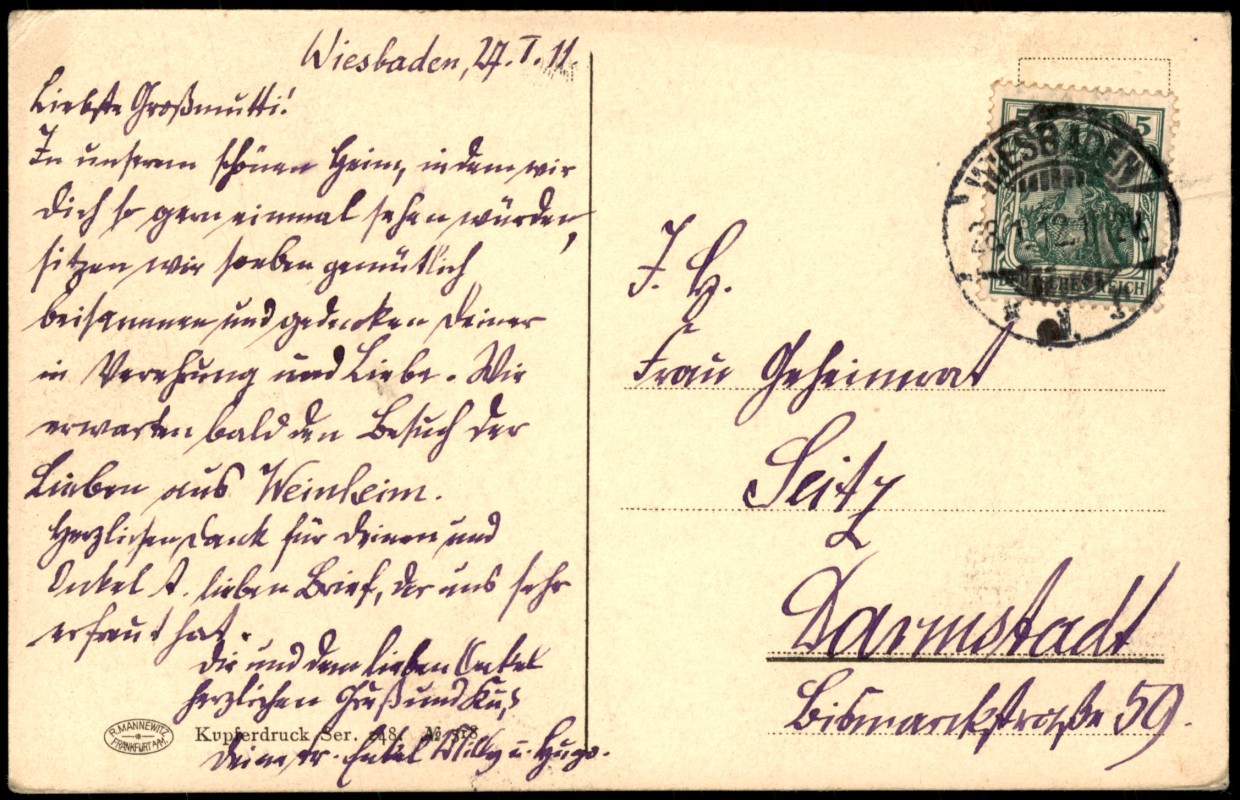 Wiesbaden, 27. I. 11.
Liebste Großmutti!
In unserem schönen Heim, in dem wir
Dich so gern einmal sehen würden,
sitzen wir soeben gemütlich
beisammen und gedenken Deiner
in Verehrung und Liebe. Wir
erwarten bald den Besuch der
Lieben aus Weinheim.
Herzlichen Dank für Deinen und
Onkel A. lieben Brief, der uns sehr
erfreut hat.
Dir und dem lieben Onkel
herzlichen Gruß und Kuß
Deine tr. Enkel Milly u. Hugo.
R. MANNEWITZ
FRANKFURT A/M.
Kupferdruck Ser. 248. № 318
5 5
DEUTSCHES REICH
WIESBADEN
28.1. 12-1N
1
Frau Geheimrat
Seitz
Darmstadt
Bismarckstraße 59.